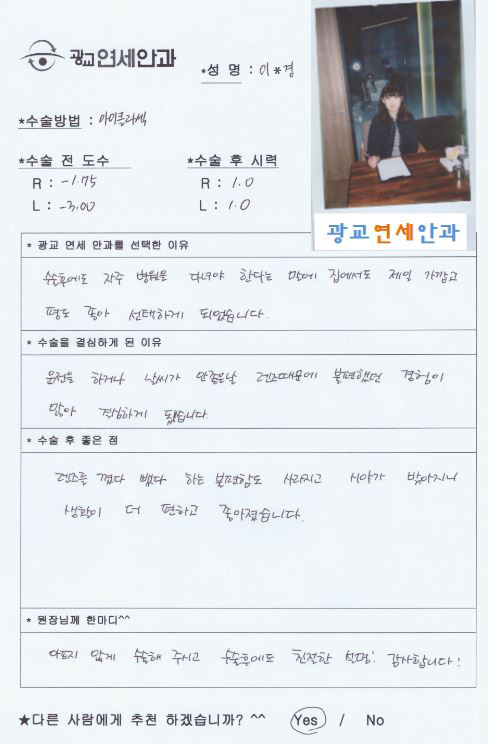 광교연세안과
*성 명 : 이*경
*수술방법 : 아이클라섹
*수술 전 도수 *수술 후 시력
R : -1.75 R : 1.0
L : -3.00 L : 1.0
광교연세안과
* 광교 연세 안과를 선택한 이유
수술후에도 자주 병원을 다녀야 한다는 말에 집에서도 제일 가깝고
평도 좋아 선택하게 되었습니다.
* 수술을 결심하게 된 이유
운전을 하거나 날씨가 안좋은날 렌즈때문에 불편했던 경험이
많아 결심하게 됐습니다.
* 수술 후 좋은 점
렌즈를 꼈다 뺐다 하는 불편함도 사라지고 시야가 밝아지니
생활이 더 편하고 좋아졌습니다.
* 원장님께 한마디^^
아프지 않게 수술해 주시고 수술후에도 친절한 설명! 감사합니다!
★다른 사람에게 추천 하겠습니까? ^^ Yes / No